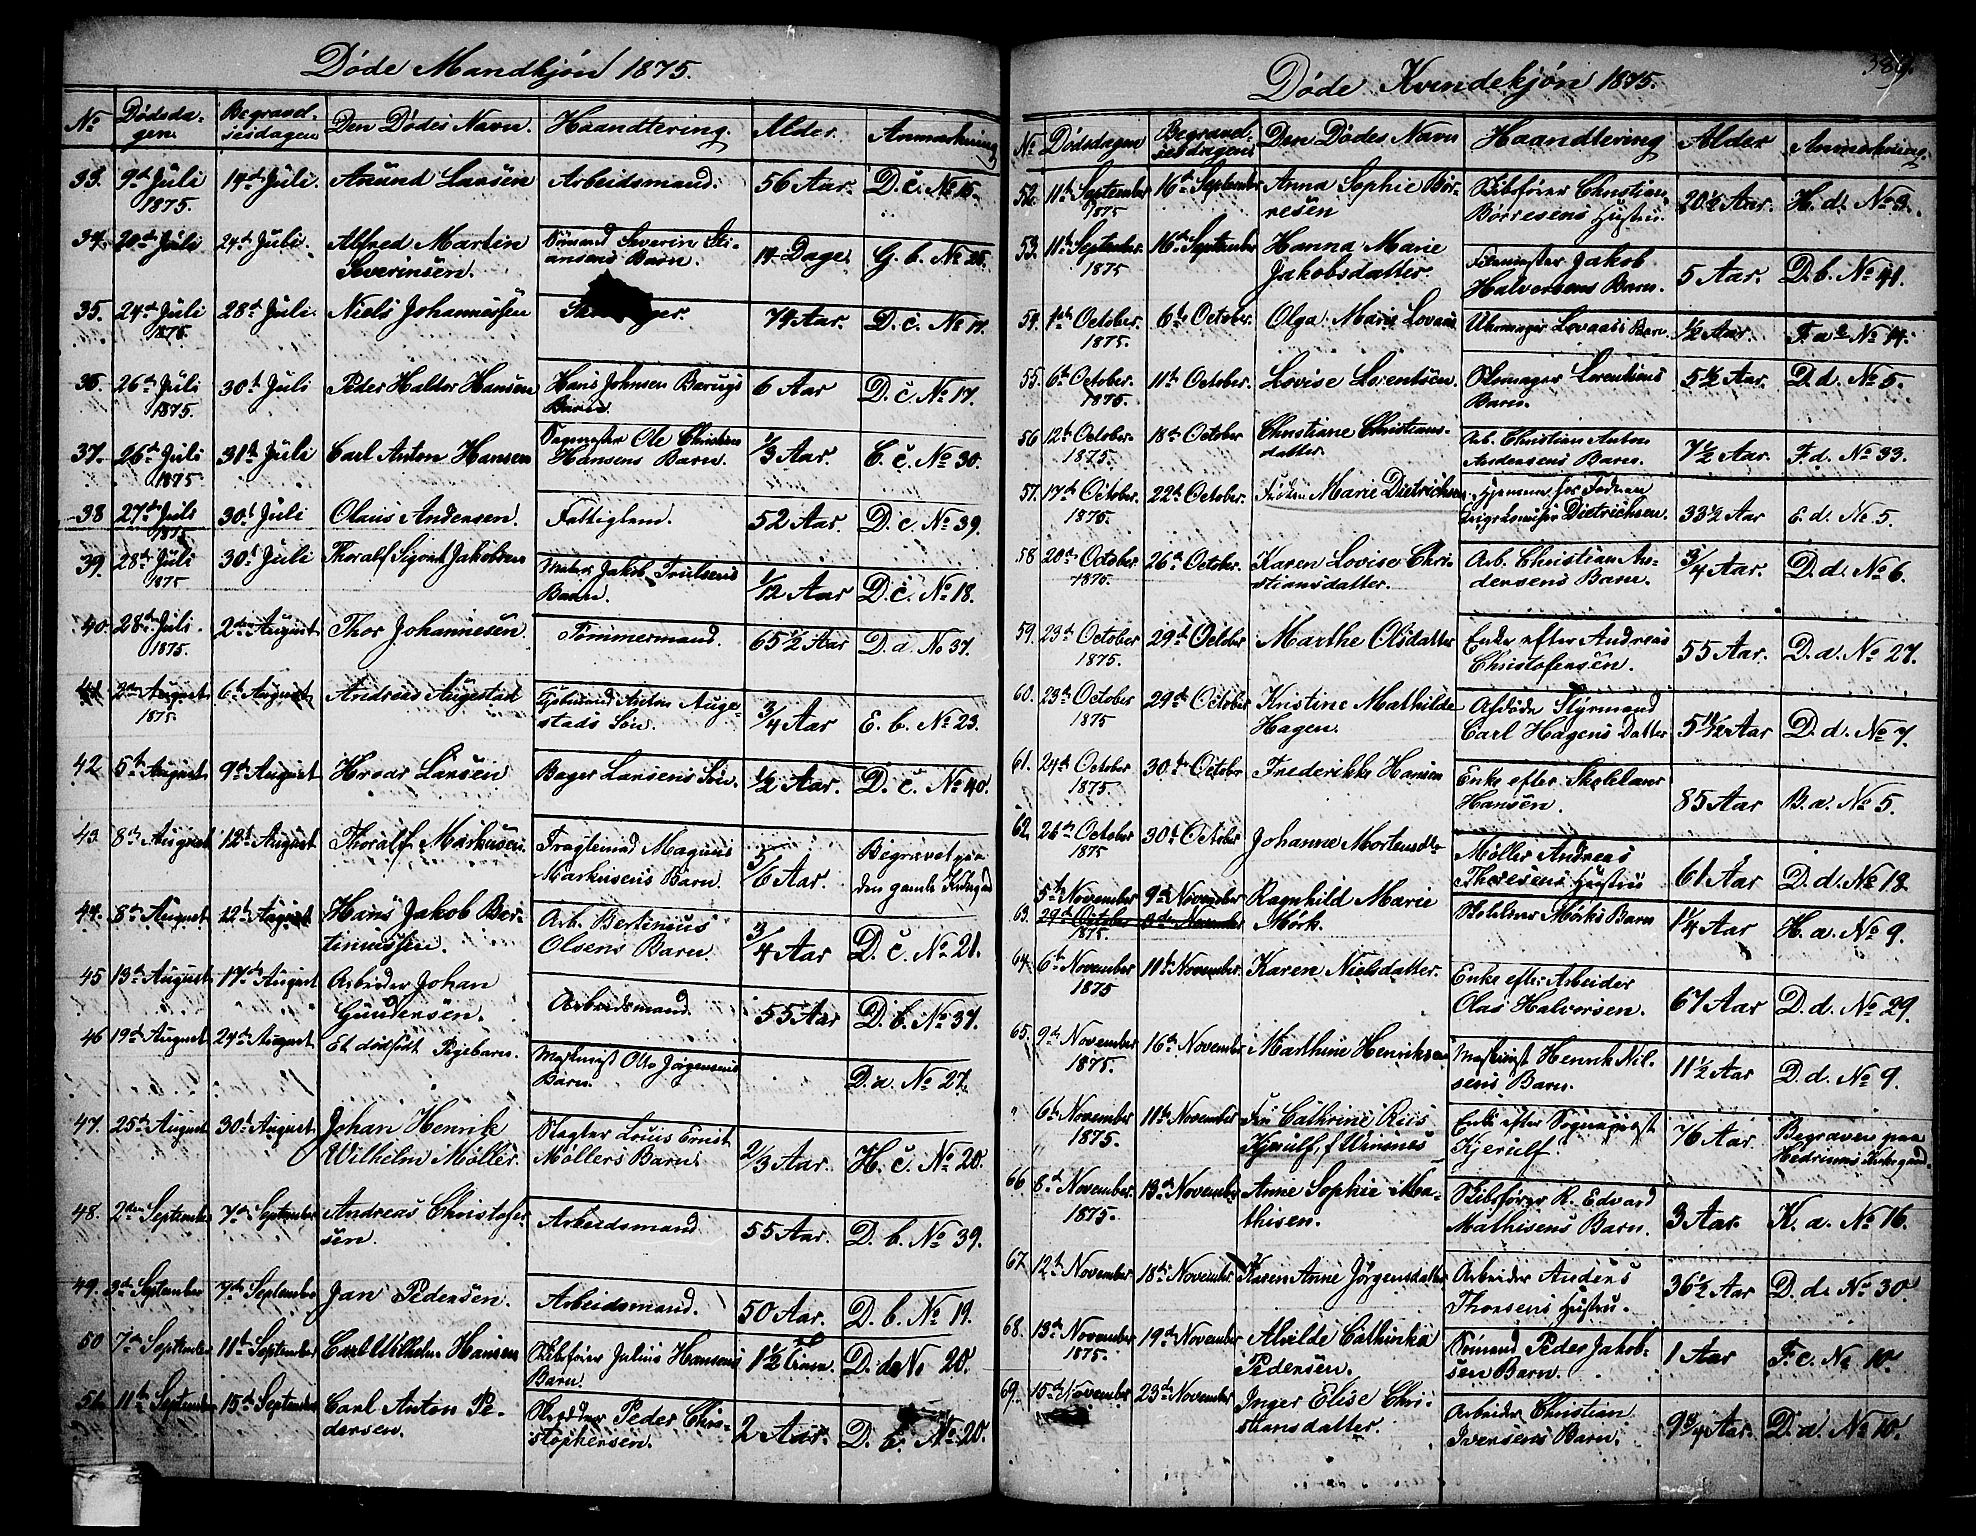 Døde Mandkjøn 1875.
No Dødsdagen Begravelsesdagen Den Dødes Navn. Haandtering. Alder. Anmærkning
33. 9de Juli 1875. 14de Juli. Anund Larsen Arbeidsmand. 56 Aar. D. c. No 15.
34. 20de Juli 24de Juli. Alfred Martin Severinsen. Sømand Severin Barn. 14 Dage. G. b. No 25.
35. 24de Juli 1875. 28de Juli. Niels Johannessen 79 Aar. D. c. No 17.
36. 26de Juli 1875. 30te Juli Peder Halvor Hansen Hans Johnsen Barn. 6 Aar D. c. No 17.
37. 26de Juli 1875 31te Juli Carl Anton Hansen Sagmester Ole Christian Hansens Barn. 1/3 Aar. C. c. No 30.
38 27de Juli 1875 30te Juli Olaus Andersen. Fattiglem. 52 Aar D. c No 39.
39. 28de Juli 1875 30te Juli Thoralf Sigvart Jakobsen Jakob Truelsens Barn. 1/12 Aar D. c. No 18.
40. 28de Juli. 1875. 2den August Thor Johannesen. Tømmermand. 65 1/2 Aar D. d. No 37.
41. 2den August 1875 6te August Andreas Augestad Anton Augestads Søn. 3/4 Aar E. b. No 23.
42 5te August 9de August Hroar Larsen Bager Larsens Søn. 1/2 Aar. D. c. No 40.
43. 8de August 12te August Thoralf Markusen. Magnus Markusens Barn. 5/6 Aar. Begravet paa den gamle Kirkegaard
44. 8de August 12te August Hans Jakob Bertiniussen. Arb. Bertinius Olsens Barn 3/4 Aar D. c. No 21.
45 13de August 17de August Arbeider Johan Gundersen. Arbeidsmand 55 Aar D. b. No 37.
46 19de August 24de August Et dødfødt Pigebarn. Maskinist Otto Jørgensens Barn. D. a. No 27.
47. 25de August 30te August Johan Henrik Wilhelm Møller. Slagter Louis Ernst Møllers Barn. 2/3 Aar. H. c. No 20.
48. 2den September 7de September Andreas Christofersen. Arbeidsmand 55 Aar. D. b. No 39.
49. 3de September 7de September Jan Pedersen. Arbeidsmand. 50 Aar. D. b. No 19.
50 7de September 11te September Carl Wilhelm Hansen Skibsfører Julius Hansens Barn. 1 1/2 D. d. No 20.
51. 11te September 15de September Carl Anton Pedersen. Peder Christophersen. 2 Aar. D. No 20.
Døde Kvindekjøn 1875.
No Dødsdagen Begravelsesdagen Den Dødes Navn Haandtering Alder Anmærkning.
52. 11te September 1875 16de September Anna Sophie Børresen Skibsfører Christian Børresens Hustru. 20 1/2 Aar. H. d. No 3.
53. 11te September. 1875 16de September Hanna Marie Jakobsdatter. Jakob Halvorsens Barn. 5 Aar. D. b. No 41.
54. 1ste October. 1875. 6te October. Olga Marie Lovaas Uhrmager Lovaas's Barn. 1/2 Aar. F. a. No 14.
55. 6te October. 1875. 11te October. Lovise Lorentsen Skomager Lorentsens Barn. 5 1/2 Aar. D. d. No 5.
56 12te October. 1875. 18de October Christiane Christiansdatter. Arb. Christian Anton Andersens Barn. 7 1/2 Aar. F. d. No 33.
57. 17de October. 1875 22de October. Marie Dietrichsen Dietrichsen. 33 1/2 Aar E. d. No 5.
58 20de October 1875. 26de October. Karen Lovise Christiansdatter. Arb. Christian Andersens Barn. 3/4 Aar. D. d. No 6.
59. 23de October 1875. 29de October Marthe Olsdatter Enke efter Andreas Christofersen. 55 Aar. D. a. No 27.
60. 23de October 1875 29de October Kristine Mathilde Hagen. Afdøde Styrmand Carl Hagens Datter 5 11/12 Aar D. d. No 7.
61. 24de October 1875. 30te October Frederikke Hansen Enke efter Skolelærer Hansen. 85 Aar B. a. No 5.
62. 26de October 1875 30te October Johanne Mortensdtr Møller Andreas Thoresens Hustru 61 Aar D. d. No 18
63. 5te November 29de October 1875. 9de November Ragnhild Marie Mørk. Mørks Barn 1 1/4 Aar H. a. No 9.
64 6te November 1875 11te November. Karen Nielsdatter. Enke efter Arbeider Olas Halvorsen. 67 Aar D. d. No 29.
65. 9de November 1875. 16de November Marthine Henriksen Maskinist Henrik Nilsens Barn. 11 1/2 Aar D. d. No 9.
" 6te November 1875. 11te November Fru Cathrine Riis Kjerulf, f Winsnes Enke efter Sogneprest Kjerulf. 76 Aar. Begraven paa Hedrums Kirkegaard.
66 8de November. 1875. 13de November Anne Sophie Mathisen. Skibsfører R. Edvard Mathisens Barn. 3 Aar. K. a. No 16.
67. 12te November 18de November Karen Anne Jørgensdatter Arbeider Anders Thorsens Hustru. 36 1/2 Aar D. d. No 30.
68. 13de November 1875. 19de November Alvilde Cathinka Pedersen. Sømand Peder Jakobsen Barn. 1 Aar F. c. No 10.
69. 15de November 23de November Inger Elise Christiansdatter. Arbeider Christian Iversens Barn. 9 3/4 Aar. D. d. No 10.